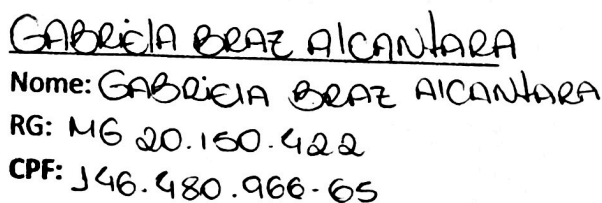 GABRIELA BRAZ ALCANTARA
Nome: GABRIELA BRAZ ALCANTARA
RG: MG 20.150.422
CPF: 146.480.966-65